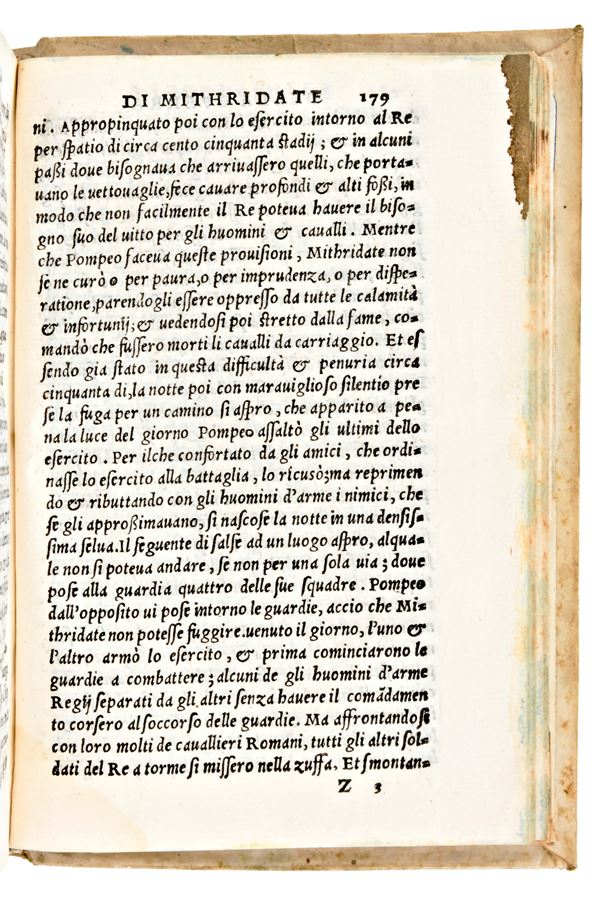 DI MITHRIDATE 179
ni. Appropinquato poi con lo eſercito intorno al Re
per ſpatio di circa cento cinquanta ſtadij; & in alcuni
paßi doue biſognaua che arriuaſſero quelli, che porta=
uano le uettouaglie, fece cauare profondi & alti foßi, in
modo che non facilmente il Re poteua hauere il biſo=
gno ſuo del uitto per gli huomini & caualli. Mentre
che Pompeo faceua queſte prouiſioni, Mithridate non
ſe ne curò o per paura, o per imprudenza, o per diſpe=
ratione, parendogli eſſere oppreſſo da tutte le calamità
& infortunij; & uedendoſi poi ſtretto dalla fame, co=
mandò che fuſſero morti li caualli da carriaggio. Et eſ
ſendo gia ſtato in queſta difficultà & penuria circa
cinquanta di, la notte poi con marauiglioſo ſilentio pre
ſe la fuga per un camino ſi aſpro, che apparito a pe=
na la luce del giorno Pompeo aſſaltò gli ultimi dello
eſercito. Per ilche confortato da gli amici, che ordi=
naſſe lo eſercito alla battaglia, lo ricusò; ma reprimen
do & ributtando con gli huomini d'arme i nimici, che
ſe gli approßimauano, ſi naſcoſe la notte in una denſiſ=
ſima ſelua. Il ſeguente di ſalſe ad un luogo aſpro, alqua=
le non ſi poteua andare, ſe non per una ſola uia; doue
poſe alla guardia quattro delle ſue ſquadre. Pompeo
dall'oppoſito ui poſe intorno le guardie, accio che Mi=
thridate non poteſſe fuggire. uenuto il giorno, l'uno &
l'altro armò lo eſercito, & prima cominciarono le
guardie a combattere; alcuni de gli huomini d'arme
Regij ſeparati da gli altri ſenza hauere il comãdamen
to corſero al ſoccorſo delle guardie. Ma affrontandoſi
con loro molti de cauallieri Romani, tutti gli altri ſol=
dati del Re a torme ſi miſſero nella zuffa. Et ſmontan=
Z 3